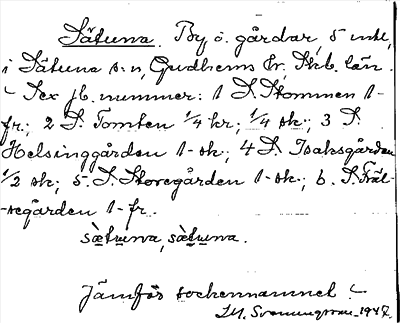 Sätuna. By o. gårdar, 5 mtl,
i Sätuna s:n, Gudhems hr, Skb. län.
Sex jb. nummer: 1 S. Stommen 1-
fr.; 2 S. Tomten 1/4 kr; 1/4 sk.; 3 S.
Helsinggården 1-sk; 4 S. Isaksgården
1/2 sk; 5. S. Storegården 1-sk.; 6. S. Fräl-
-segården 1-fr.
sætuna, sætuna.
Jämför sockennamnet